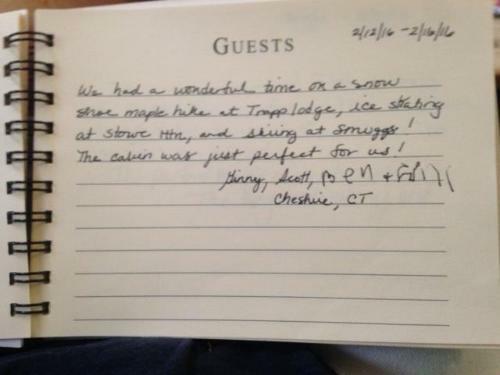 2/12/16 - 2/16/16
GUESTS
We had a wonderful time on a snow
shoe maple hike at Trapp lodge, ice skating
at Stowe Mtn, and skiing at Smuggs!
The cabin was just perfect for us!
Ginny, Scott, Ben +
Cheshire, CT